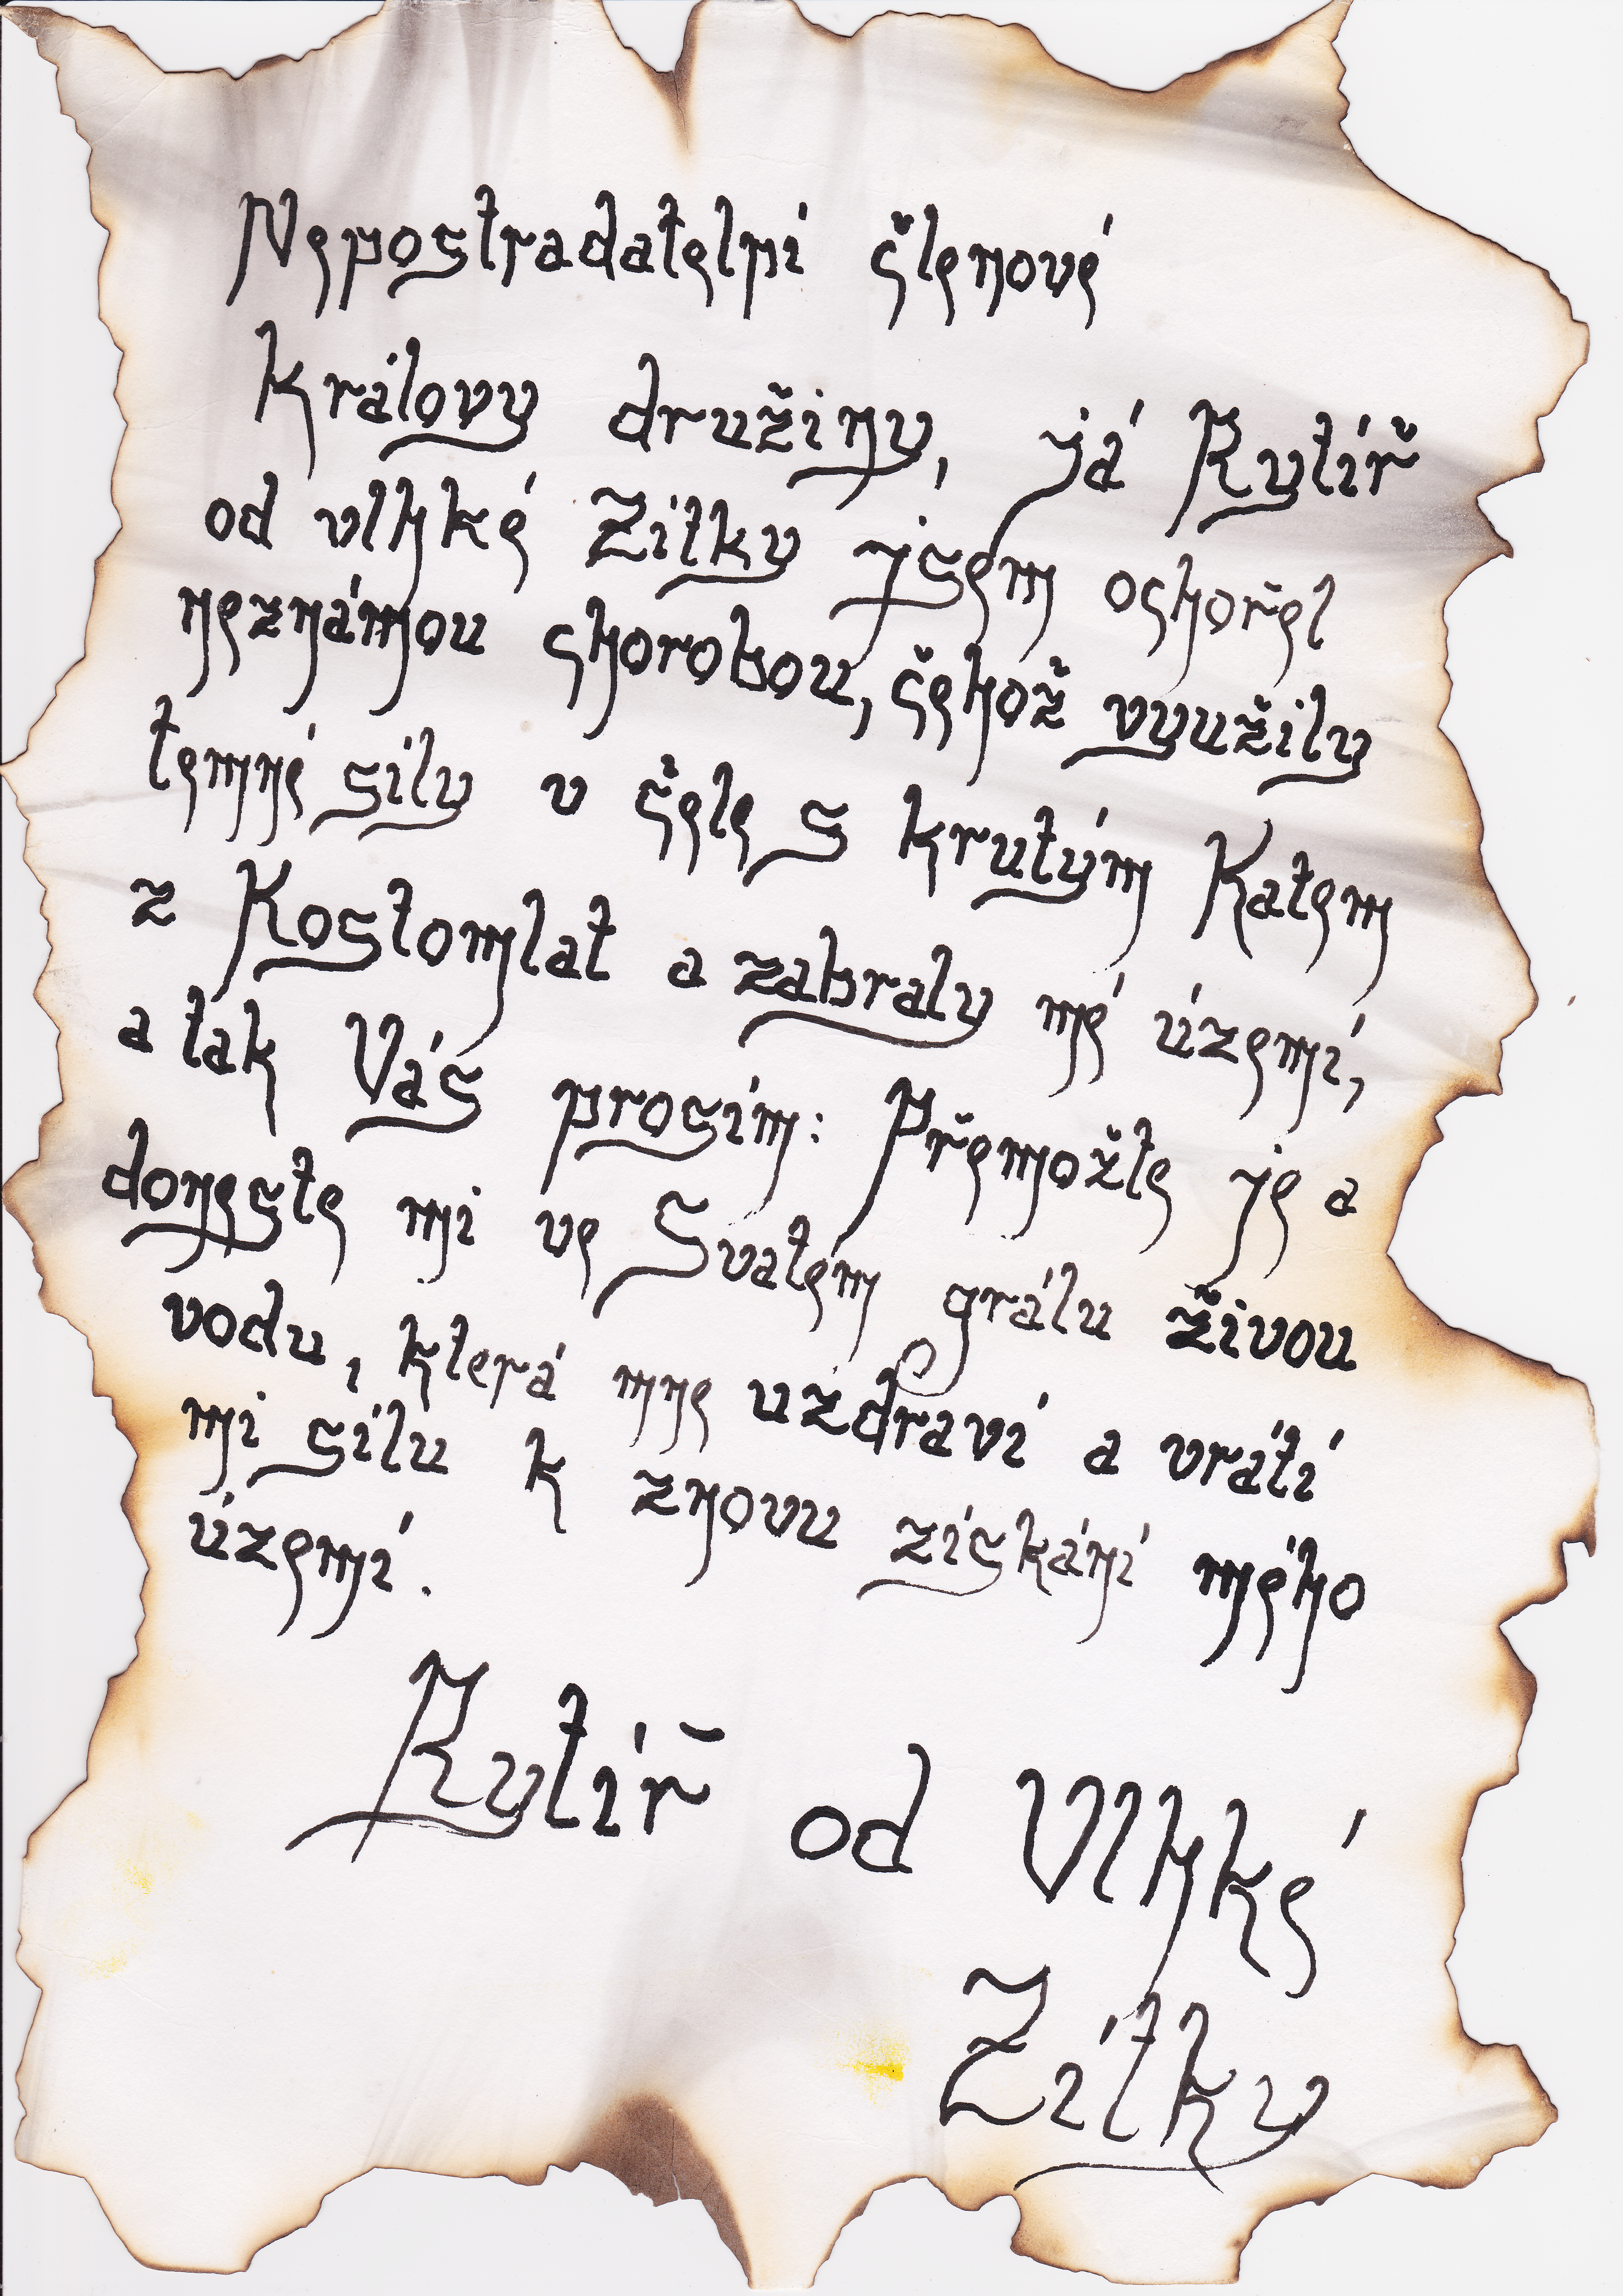 Nepostradatelní členové
Královy družiny, já Rytíř
od vlhké Zítky jsem ochořel
neznámou chorobou, čehož využily
temné síly v čele s krutým Katem
z Kostomlat a zabraly mé území,
a tak Vás prosím: Přemožte je a
doneste mi ve Svatém grálu živou
vodu, která mne uzdraví a vrátí
mi sílu k znovu získání mého
území.
Rytíř od Vlhké
Zítky